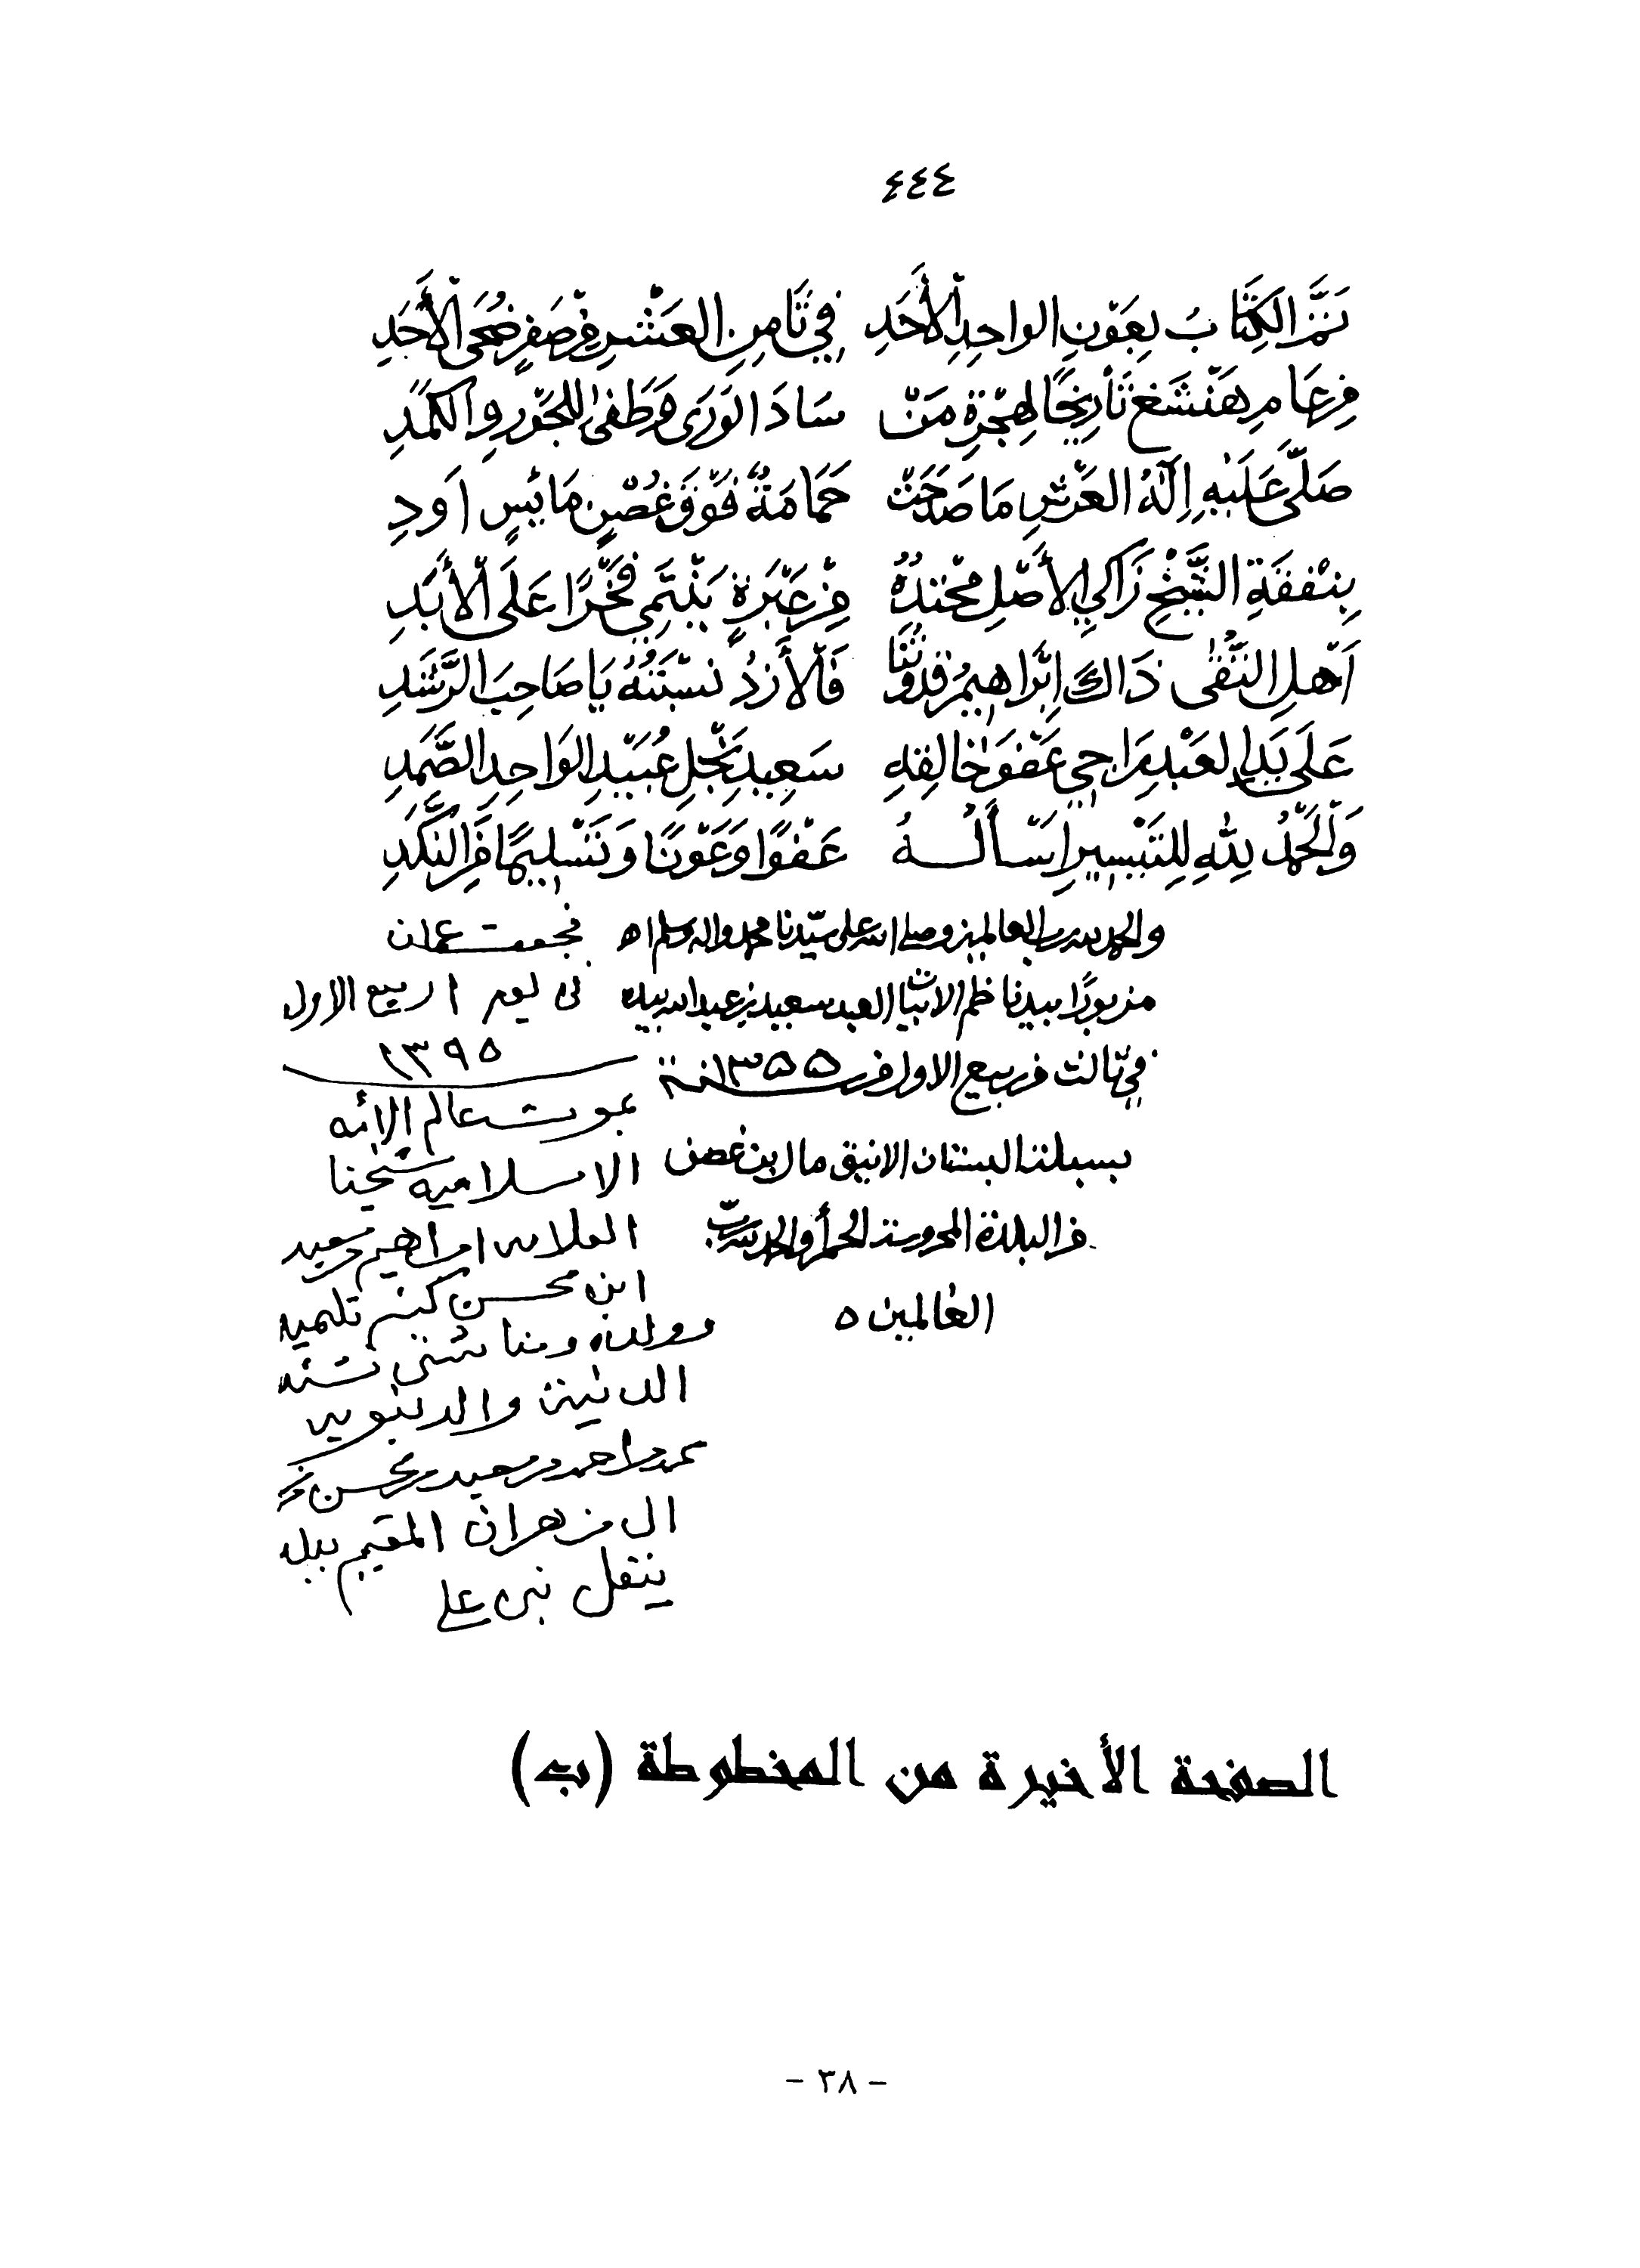 ٤٤٤
تَمَّ الكِتَابُ بِعَوْنِ الواحِدِ الأَحَدِ فِي ثَامِنِ العَشْرِ مِنْ صَفَرٍ ضُحَى الأَحَدِ
مِن عَامِ هَنْشَغٍ تَأْرِيخًا لِهِجْرَةِ مَنْ سَادَ الوَرَى مُطْفِئ للجَوْرِ والكَمَدِ
صَلَّى عَلَيْهِ إِلَهُ العَرْشِ مَا صَدَحَتْ حَمَامَةٌ فَوْقَ غُصْنٍ مَائِسٍ اَوَدِ
بِنَفْقَةِ الشَّيْخِ زَاكِي الأَصْلِ مَحْتِدُهُ مِنْ عَبْرَةٍ يَنْتَمِي فَخْرًا عَلَى الأَبَدِ
اَهْلِ التُّقَى ذَاكَ اِبْرَاهِيمُ قُدْوَتُنَا فَالأَزْدُ نِسْبَتُهُ يَا صَاحِبَ الرَّشَدِ
عَلَى يَدِ العَبْدِ رَاجِي عَفْوَ خَالِقِهِ سَعِيدِ نَجْلِ عُبَيْدِ الوَاحِدِ الصَّمَدِ
وَالْحَمْدُ لِلهِ لِلتَّيْسِيرِ اَسْأَلُهُ عَفْوًا وَعَوْنًا وَتَسْلِيمًا مِنَ النَّكَدِ
والحمد لله رب العالمين وصلى الله على سيدنا محمد واله وسلم اه
مزبورًا بيد ناظم الابيات العبد سعيد بن عبدالله بيده
في ثالث من ربيع الاول من سنة ١٣٥٥
بسبلة البستان الانيق مال ابن غصن
من البلدة المحروسة الحمرأ والحمد لله رب
العالمين ه
فجعت عمان
فى يوم ١ ربيع الاول
١٣٩٥
بموت عالم الأمه
الاسلاميه شيخنا
العلامه ابراهيم بن سعيد
ابن محسن كتبه تلميذه
وولده
الدينية والدنيويه
احمد بن سعيد بن محسن من
ال زهران المقيم ببلد
بنى على
الصفحة الأخيرة من المخطوطة (ب)
- ٣٨ -